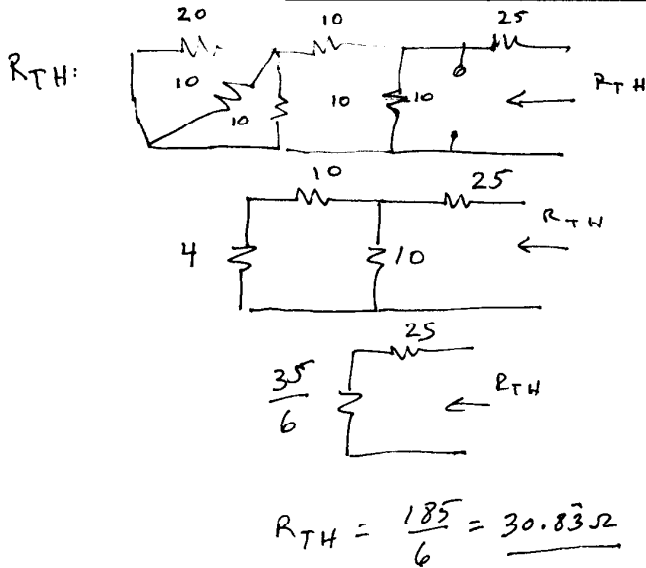 20 10 25
R_TH: 10 10 10 10 ← R_TH
10 25
4 10 ← R_TH
25
35/6 ← R_TH
R_TH = 185/6 = 30.83 Ω